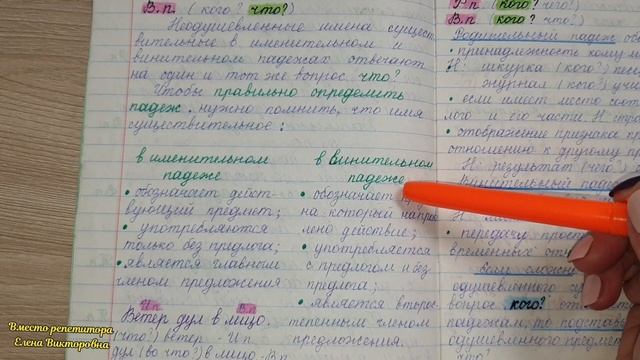 В.п. (кого? что?)
Неодушевленные имена сущест
вительные в именительном и
винительном падежах отвечают
на один и тот же вопрос что?
Чтобы правильно определить
падеж, нужно помнить, что имя
существительное:
в именительном
падеже
• обозначает дейст-
вующий предмет;
• употребляются
только без предлога;
• является главным
членом предложения
в винительном
падеже
• обозначает
на который напра
лено действие;
• употребляется
с предлогом и без
предлога;
• является второс
тепенным членом
предложения.
И.п. В.п.
Ветер дул в лицо.
(что?) ветер И.п.
дул (во что?) в лицо - В.п.
Р.п. (кого? чего?)
В.п. (кого? что?)
Родительный падеж обо
• принадлежность кому-ли
Н: шкурка (кого?)
журнал (кого?)
• если имеет место соот
лого и его части Н:
• отображение признака п
отношению к другому пр
Н: результат (чего?)
Винительный пад
Н
• передачу прост
временных отн
Если
одушевленного
вопрос кого?
падежам, то подстав
одушевленного предмет
что.
Вместо репетитора
Елена Викторовна